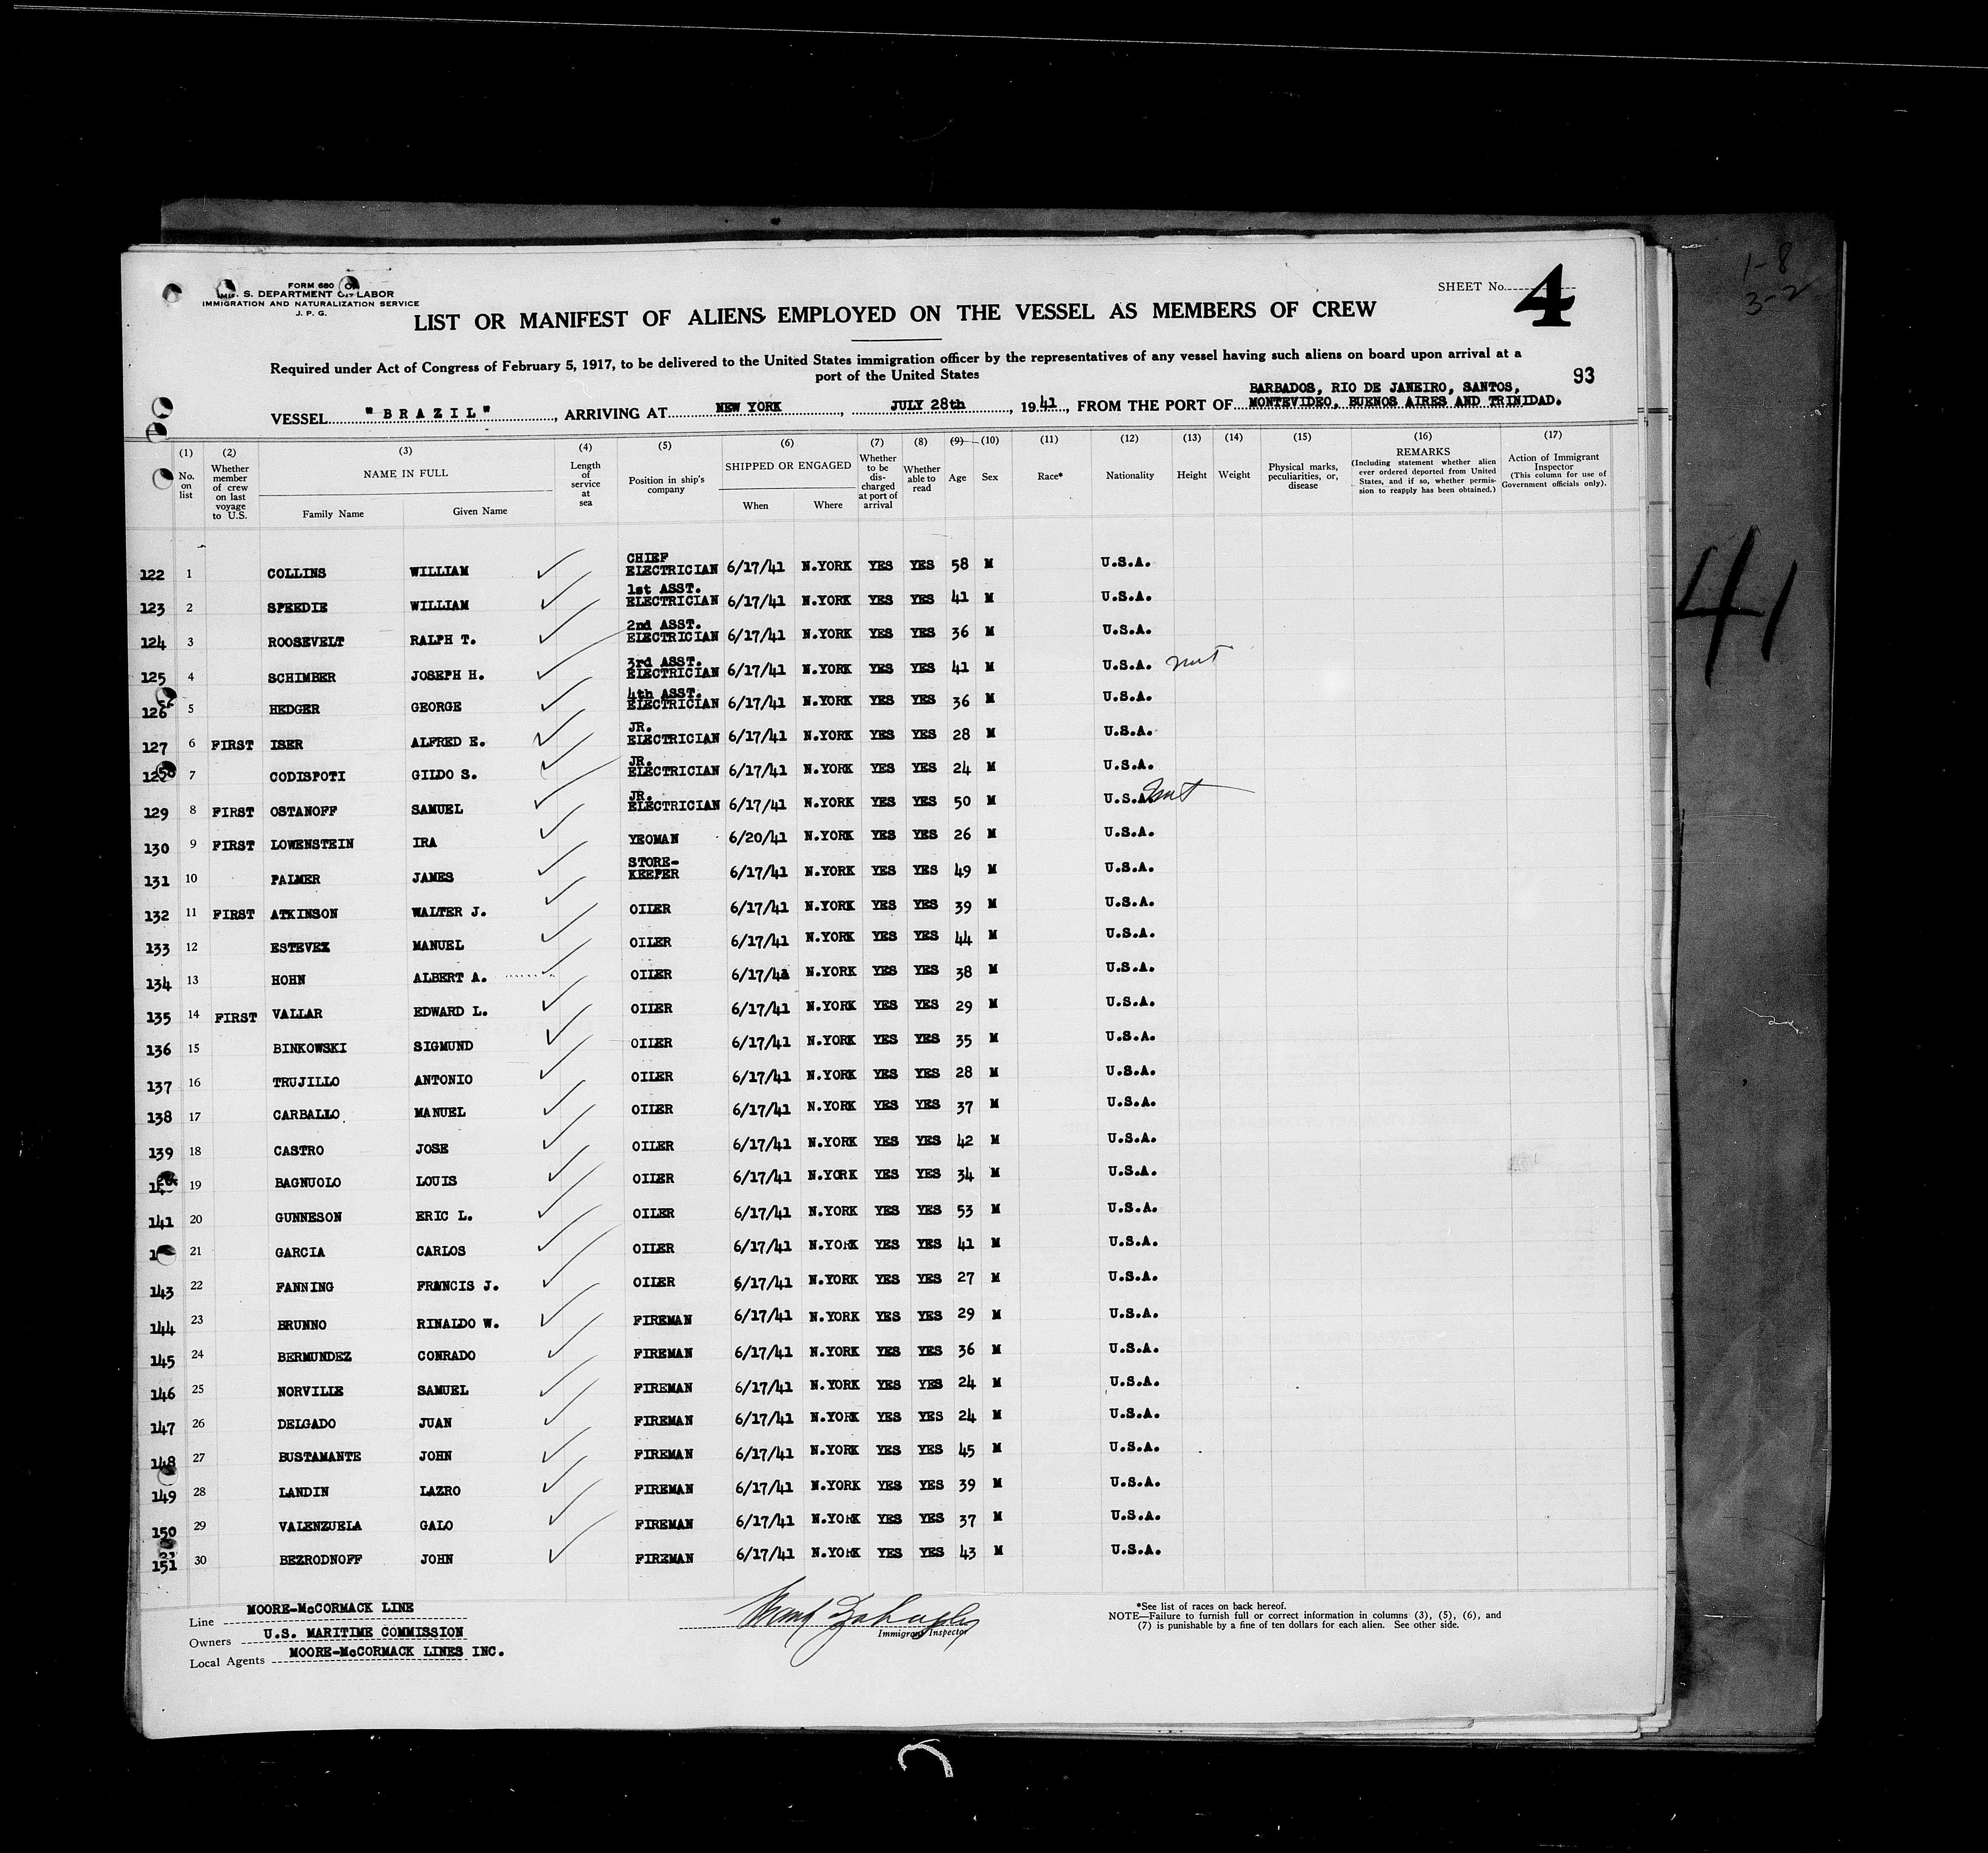 FORM 680
U. S. DEPARTMENT OF LABOR
IMMIGRATION AND NATURALIZATION SERVICE
J. P. G.
SHEET No. 4
1-8
3-2
LIST OR MANIFEST OF ALIENS EMPLOYED ON THE VESSEL AS MEMBERS OF CREW
Required under Act of Congress of February 5, 1917, to be delivered to the United States immigration officer by the representatives of any vessel having such aliens on board upon arrival at a
port of the United States
93
BARBADOS, RIO DE JANEIRO, SANTOS,
VESSEL "BRAZIL", ARRIVING AT NEW YORK, JULY 28th, 1941, FROM THE PORT OF MONTEVIDEO, BUENOS AIRES AND TRINIDAD.
(1) No. on list
(2) Whether member of crew on last voyage to U.S.
(3) NAME IN FULL Family Name Given Name
(4) Length of service at sea
(5) Position in ship's company
(6) SHIPPED OR ENGAGED When Where
(7) Whether to be discharged at port of arrival
(8) Whether able to read
(9) Age
(10) Sex
(11) Race*
(12) Nationality
(13) Height
(14) Weight
(15) Physical marks, peculiarities, or, disease
(16) REMARKS (Including statement whether alien ever ordered deported from United States, and if so, whether permission to reapply has been obtained.)
(17) Action of Immigrant Inspector (This column for use of Government officials only).
122 1 COLLINS WILLIAM CHIEF ELECTRICIAN 6/17/41 N.YORK YES YES 58 M U.S.A.
123 2 SPEEDIE WILLIAM 1st ASST. ELECTRICIAN 6/17/41 N.YORK YES YES 41 M U.S.A.
124 3 ROOSEVELT RALPH T. 2nd ASST. ELECTRICIAN 6/17/41 N.YORK YES YES 36 M U.S.A.
125 4 SCHIMBER JOSEPH H. 3rd ASST. ELECTRICIAN 6/17/41 N.YORK YES YES 41 M U.S.A.
126 5 HEDGER GEORGE 4th ASST. ELECTRICIAN 6/17/41 N.YORK YES YES 36 M U.S.A.
127 6 FIRST ISER ALFRED E. JR. ELECTRICIAN 6/17/41 N.YORK YES YES 28 M U.S.A.
7 CODISPOTI GILDO S. JR. ELECTRICIAN 6/17/41 N.YORK YES YES 24 M U.S.A.
129 8 FIRST OSTANOFF SAMUEL JR. ELECTRICIAN 6/17/41 N.YORK YES YES 50 M U.S.A.
130 9 FIRST LOWENSTEIN IRA YEOMAN 6/20/41 N.YORK YES YES 26 M U.S.A.
131 10 PALMER JAMES STORE-KEEPER 6/17/41 N.YORK YES YES 49 M U.S.A.
132 11 FIRST ATKINSON WALTER J. OILER 6/17/41 N.YORK YES YES 39 M U.S.A.
133 12 ESTEVEZ MANUEL OILER 6/17/41 N.YORK YES YES 44 M U.S.A.
134 13 HOHN ALBERT A. OILER 6/17/41 N.YORK YES YES 38 M U.S.A.
135 14 FIRST VALLAR EDWARD L. OILER 6/17/41 N.YORK YES YES 29 M U.S.A.
136 15 BINKOWSKI SIGMUND OILER 6/17/41 N.YORK YES YES 35 M U.S.A.
137 16 TRUJILLO ANTONIO OILER 6/17/41 N.YORK YES YES 28 M U.S.A.
138 17 CARBALLO MANUEL OILER 6/17/41 N.YORK YES YES 37 M U.S.A.
139 18 CASTRO JOSE OILER 6/17/41 N.YORK YES YES 42 M U.S.A.
19 BAGNUOLO LOUIS OILER 6/17/41 N.YORK YES YES 34 M U.S.A.
141 20 GUNNESON ERIC L. OILER 6/17/41 N.YORK YES YES 53 M U.S.A.
21 GARCIA CARLOS OILER 6/17/41 N.YORK YES YES 41 M U.S.A.
143 22 FANNING FRANCIS J. OILER 6/17/41 N.YORK YES YES 27 M U.S.A.
144 23 BRUNNO RINALDO W. FIREMAN 6/17/41 N.YORK YES YES 29 M U.S.A.
145 24 BERMUNDEZ CONRADO FIREMAN 6/17/41 N.YORK YES YES 36 M U.S.A.
146 25 NORVILLE SAMUEL FIREMAN 6/17/41 N.YORK YES YES 24 M U.S.A.
147 26 DELGADO JUAN FIREMAN 6/17/41 N.YORK YES YES 24 M U.S.A.
148 27 BUSTAMANTE JOHN FIREMAN 6/17/41 N.YORK YES YES 45 M U.S.A.
149 28 LANDIN LAZRO FIREMAN 6/17/41 N.YORK YES YES 39 M U.S.A.
150 29 VALENZUELA GALO FIREMAN 6/17/41 N.YORK YES YES 37 M U.S.A.
151 30 BEZRODNOFF JOHN FIREMAN 6/17/41 N.YORK YES YES 43 M U.S.A.
41
Line MOORE-McCORMACK LINE
Owners U.S. MARITIME COMMISSION
Local Agents MOORE-McCORMACK LINES INC.
Immigrant Inspector
*See list of races on back hereof.
NOTE—Failure to furnish full or correct information in columns (3), (5), (6), and
(7) is punishable by a fine of ten dollars for each alien. See other side.